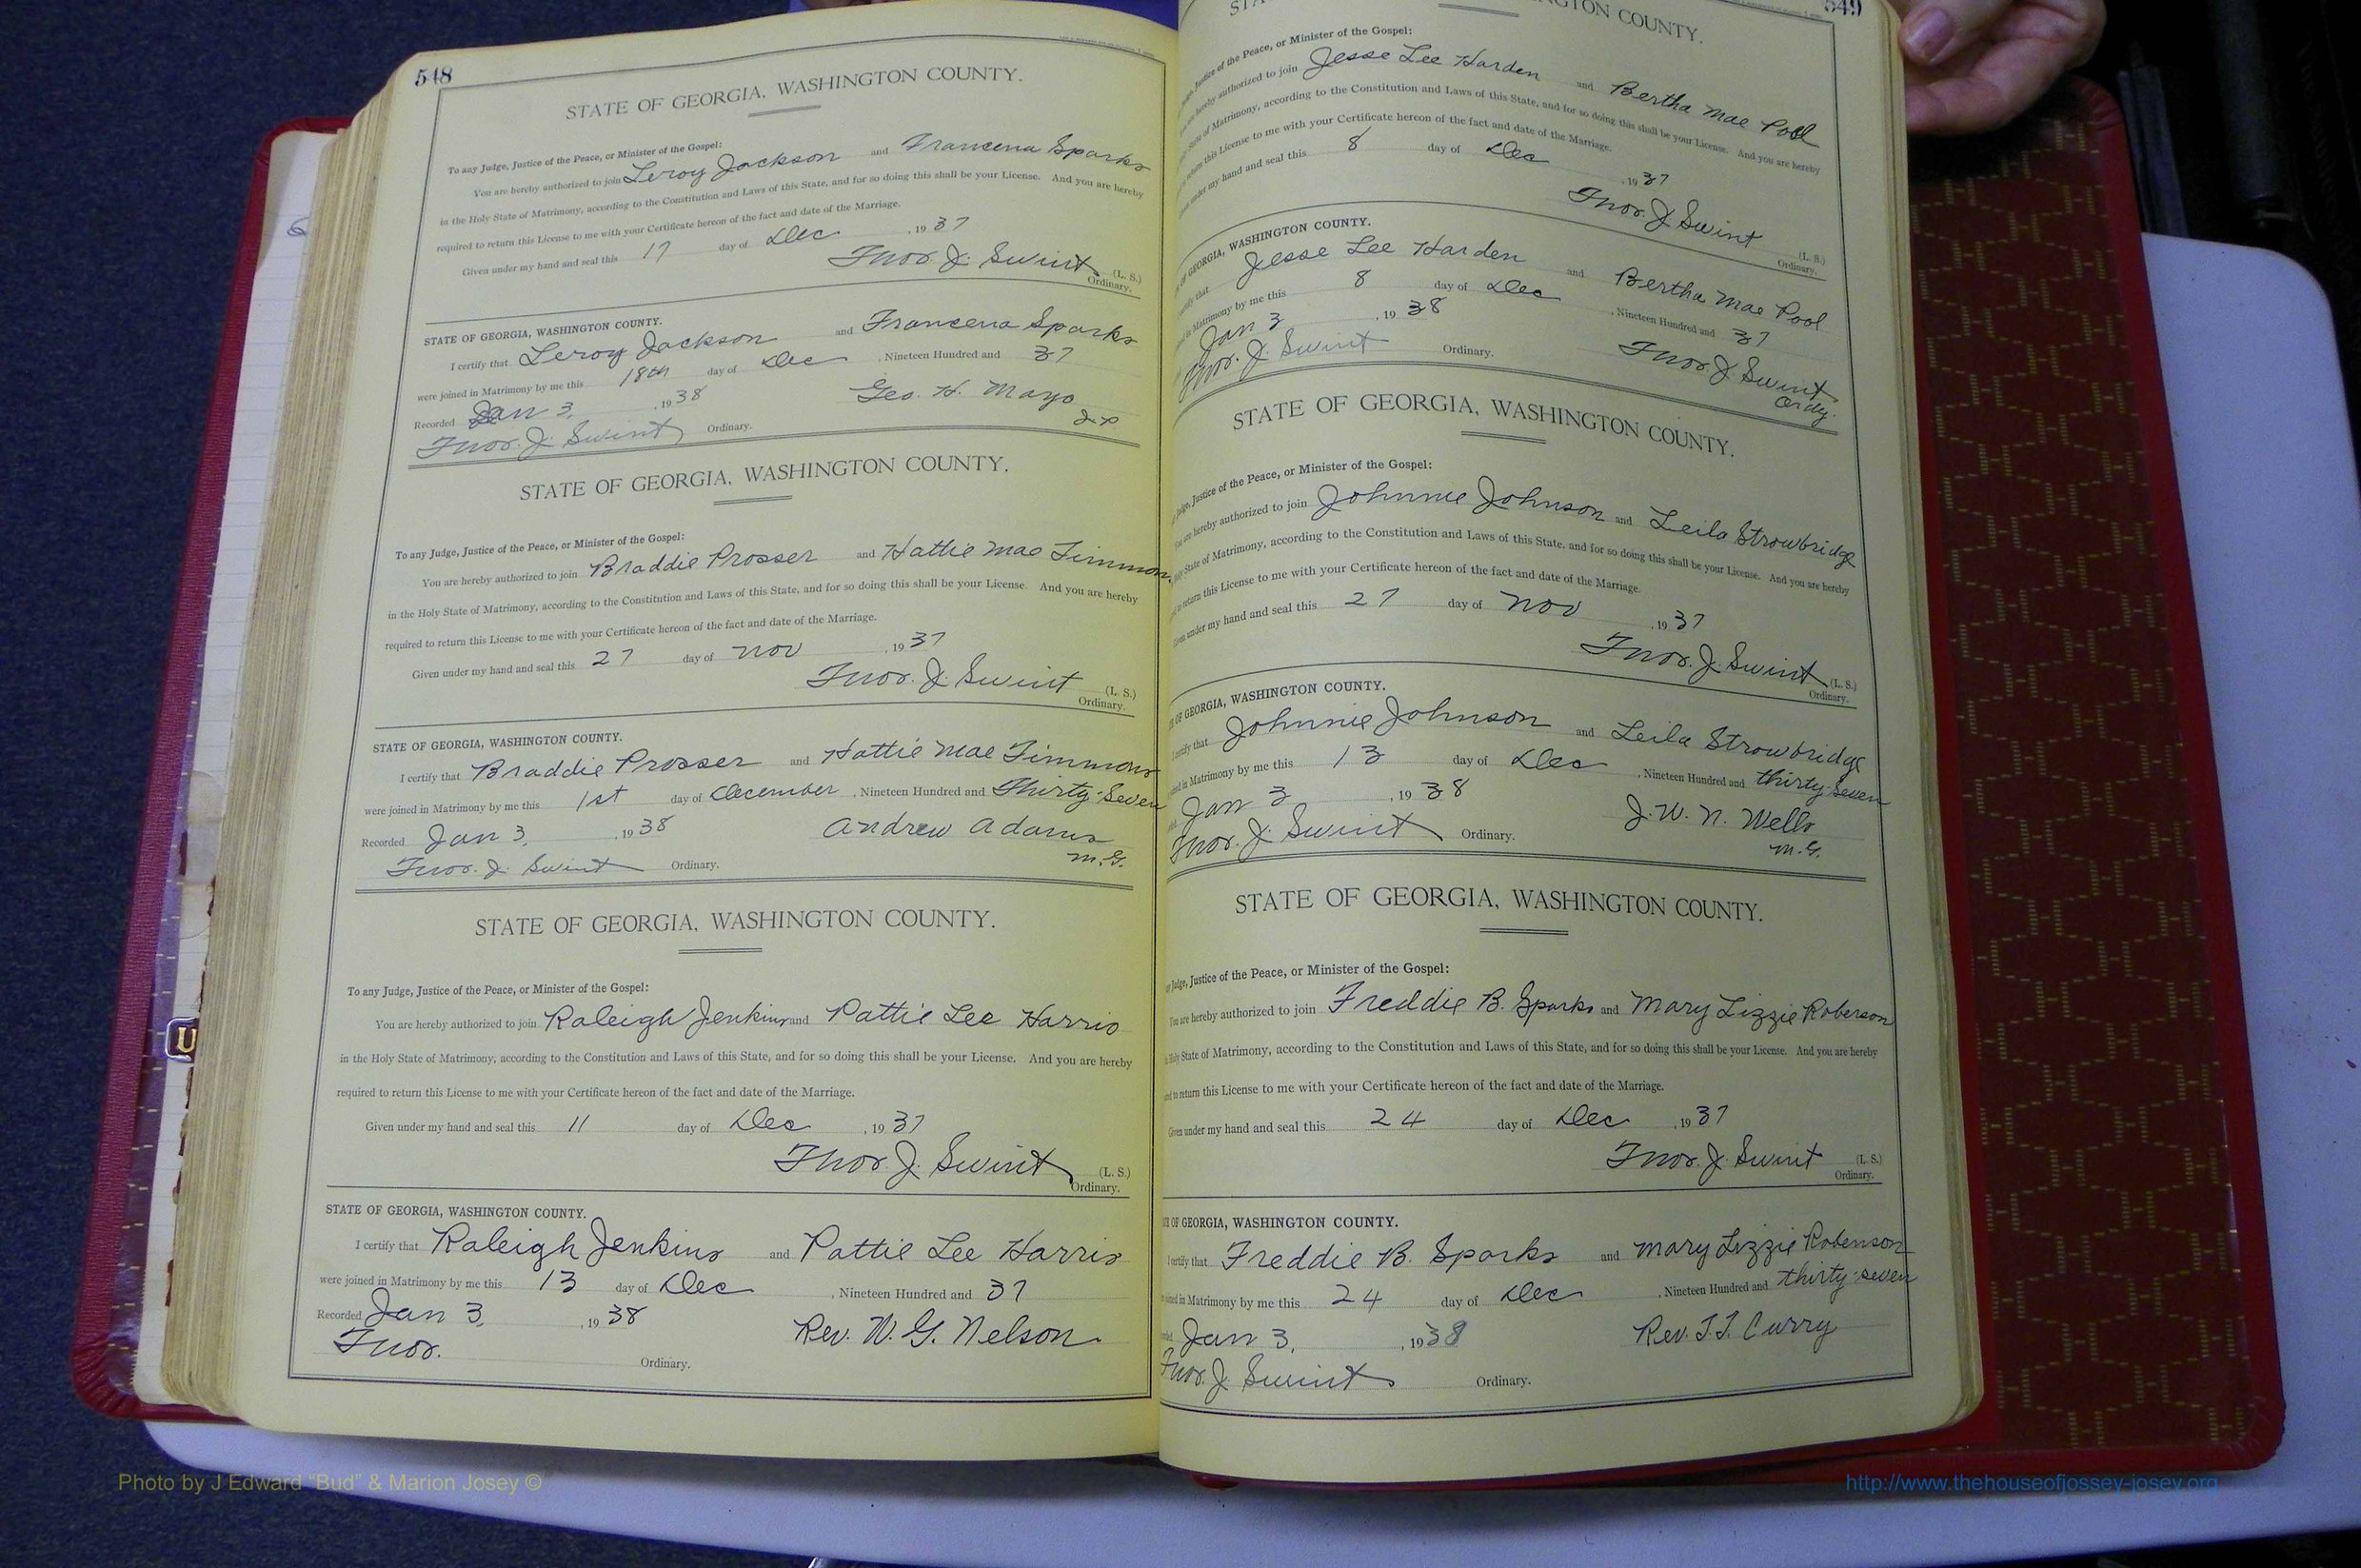 548
STATE OF GEORGIA, WASHINGTON COUNTY.
To any Judge, Justice of the Peace, or Minister of the Gospel:
You are hereby authorized to join Leroy Jackson and Francena Sparks
in the Holy State of Matrimony, according to the Constitution and Laws of this State, and for so doing this shall be your License. And you are hereby
required to return this License to me with your Certificate hereon of the fact and date of the Marriage.
Given under my hand and seal this 17 day of Dec , 1937
Thos. J. Swint (L. S.)
Ordinary.
STATE OF GEORGIA, WASHINGTON COUNTY.
I certify that Leroy Jackson and Francena Sparks
were joined in Matrimony by me this 18th day of Dec , Nineteen Hundred and 37
Recorded Jan 3, , 1938 Geo. H. Mayo
Thos. J. Swint Ordinary. J.P
STATE OF GEORGIA, WASHINGTON COUNTY.
To any Judge, Justice of the Peace, or Minister of the Gospel:
You are hereby authorized to join Braddie Prosser and Hattie Mae Timmons
in the Holy State of Matrimony, according to the Constitution and Laws of this State, and for so doing this shall be your License. And you are hereby
required to return this License to me with your Certificate hereon of the fact and date of the Marriage.
Given under my hand and seal this 27 day of Nov , 1937
Thos. J. Swint (L. S.)
Ordinary.
STATE OF GEORGIA, WASHINGTON COUNTY.
I certify that Braddie Prosser and Hattie Mae Timmons
were joined in Matrimony by me this 1st day of December , Nineteen Hundred and Thirty-Seven
Recorded Jan 3, , 1938 Andrew Adams
Thos. J. Swint Ordinary. M.G.
STATE OF GEORGIA, WASHINGTON COUNTY.
To any Judge, Justice of the Peace, or Minister of the Gospel:
You are hereby authorized to join Raleigh Jenkins and Pattie Lee Harris
in the Holy State of Matrimony, according to the Constitution and Laws of this State, and for so doing this shall be your License. And you are hereby
required to return this License to me with your Certificate hereon of the fact and date of the Marriage.
Given under my hand and seal this 11 day of Dec , 1937
Thos. J. Swint (L. S.)
Ordinary.
STATE OF GEORGIA, WASHINGTON COUNTY.
I certify that Raleigh Jenkins and Pattie Lee Harris
were joined in Matrimony by me this 13 day of Dec , Nineteen Hundred and 37
Recorded Jan 3, , 1938 Rev. W. G. Nelson.
Thos. Ordinary.
549
NGTON COUNTY.
Justice of the Peace, or Minister of the Gospel:
hereby authorized to join Jesse Lee Harden and Bertha Mae Pool
State of Matrimony, according to the Constitution and Laws of this State, and for so doing this shall be your License. And you are hereby
return this License to me with your Certificate hereon of the fact and date of the Marriage.
under my hand and seal this 8 day of Dec , 1937
Thos. J. Swint (L. S.)
Ordinary.
OF GEORGIA, WASHINGTON COUNTY.
certify that Jesse Lee Harden and Bertha Mae Pool
in Matrimony by me this 8 day of Dec , Nineteen Hundred and 37
Jan 3 , 1938 Thos. J. Swint
Thos. J. Swint Ordinary. Ordy.
STATE OF GEORGIA, WASHINGTON COUNTY.
Judge, Justice of the Peace, or Minister of the Gospel:
You are hereby authorized to join Johnnie Johnson and Leila Strowbridge
Holy State of Matrimony, according to the Constitution and Laws of this State, and for so doing this shall be your License. And you are hereby
to return this License to me with your Certificate hereon of the fact and date of the Marriage.
Given under my hand and seal this 27 day of Nov , 1937
Thos. J. Swint (L. S.)
Ordinary.
OF GEORGIA, WASHINGTON COUNTY.
I certify that Johnnie Johnson and Leila Strowbridge
in Matrimony by me this 13 day of Dec , Nineteen Hundred and thirty-seven
Jan 3 , 1938 J. W. N. Wells
Thos. J. Swint Ordinary. M.G.
STATE OF GEORGIA, WASHINGTON COUNTY.
Judge, Justice of the Peace, or Minister of the Gospel:
You are hereby authorized to join Freddie B. Sparks and Mary Lizzie Roberson
Holy State of Matrimony, according to the Constitution and Laws of this State, and for so doing this shall be your License. And you are hereby
to return this License to me with your Certificate hereon of the fact and date of the Marriage.
Given under my hand and seal this 24 day of Dec , 1937
Thos. J. Swint (L. S.)
Ordinary.
OF GEORGIA, WASHINGTON COUNTY.
I certify that Freddie B. Sparks and Mary Lizzie Robenson
in Matrimony by me this 24 day of Dec , Nineteen Hundred and thirty-seven
Jan 3, , 1938 Rev. J. J. Curry
Thos. J. Swint Ordinary.
Photo by J Edward "Bud" & Marion Josey ©
http://www.thehouseofjossey-josey.org